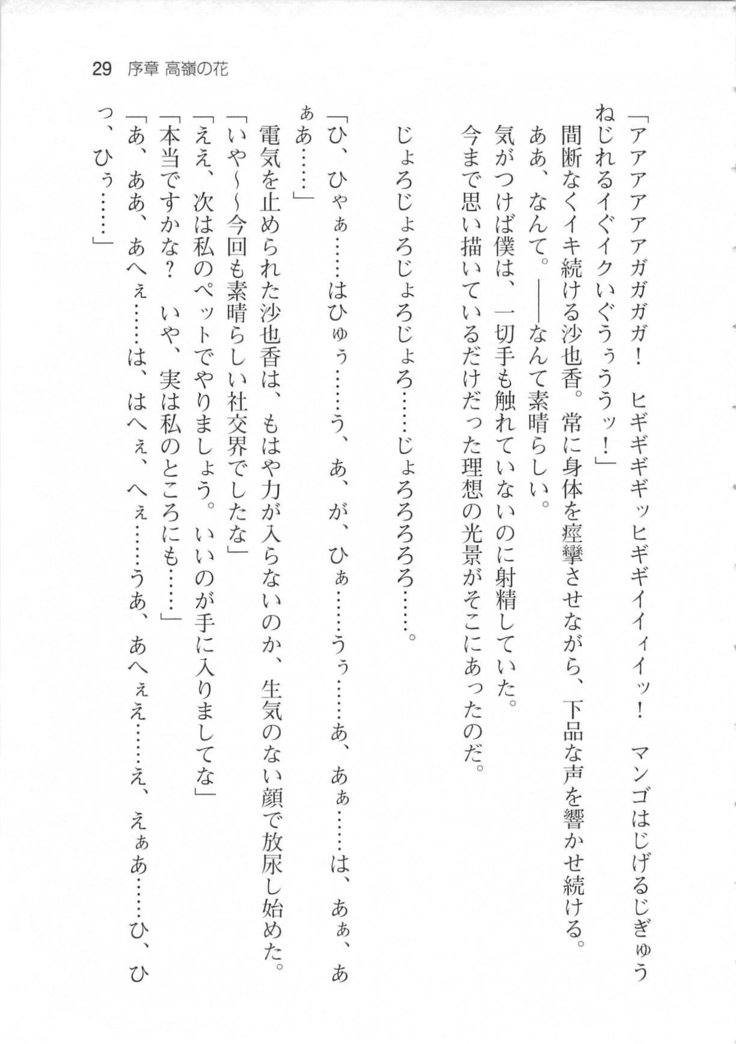 29 序章 高嶺の花
「アアアアアアガガガガ! ヒギギギギッヒギギイイィイッ! マンゴはじげるじぎゅう
ねじれるイぐイクいぐうぅううッ!」
間断なくイキ続ける沙也香。常に身体を痙攣させながら、下品な声を響かせ続ける。
ああ、なんて。――なんて素晴らしい。
気がつけば僕は、一切手も触れていないのに射精していた。
今まで思い描いているだけだった理想の光景がそこにあったのだ。
じょろじょろじょろじょろ……じょろろろろろ……。
「ひ、ひゃぁ……はひゅぅ……う、あ、が、ひぁ……うぅ……あ、あぁ……は、あぁ、あ
ぁあ……」
電気を止められた沙也香は、もはや力が入らないのか、生気のない顔で放尿し始めた。
「いや～～今回も素晴らしい社交界でしたな」
「ええ、次は私のペットでやりましょう。いいのが手に入りましてな」
「本当ですかな? いや、実は私のところにも……」
「あ、ああ、あへぇ……は、はへぇ、へぇ……うあ、あへぇえ……え、えぁあ……ひ、ひ
っ、ひぅ……」